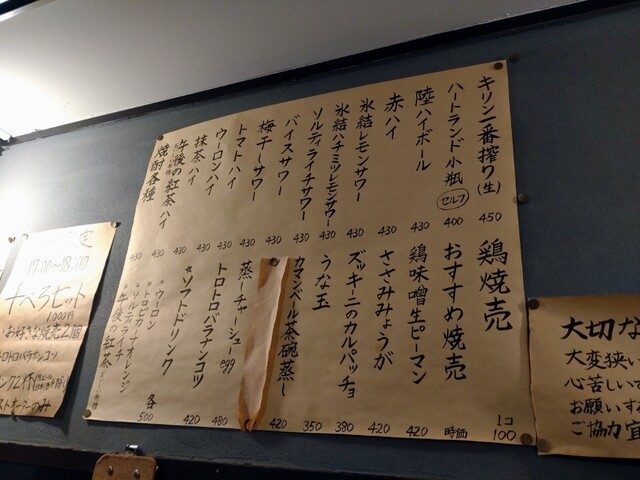 キリン一番搾り(生) 450
ハートランド小瓶 セルフ 400
陸ハイボール 430
赤ハイ 430
氷結レモンサワー 430
氷結ハチミツレモンサワー 430
ソルティライチサワー 430
バイスサワー 430
梅干しサワー 430
トマトハイ 430
ウーロンハイ 430
抹茶ハイ 430
午後の紅茶ハイ 430
焼酎各種 430
鶏焼売 1コ 100
おすすめ焼売 時価
鶏味噌生ピーマン 420
ささみみょうが 420
ズッキーニのカルパッチョ 380
うな玉 350
カマンベール茶碗蒸し 420
蒸しチャーシューegg 480
トロトロバラチンコツ 420
*ソフトドリンク 各 500
*ウーロン
*トロピカーナオレンジ
*ソルティライチ
*午後の紅茶
17:00~18:00
千べろセット
1000円
お好きな焼売2個
トロトロバラチンコツ
ンク2杯
ストオーダーのみ
大切な
大変狭い
心苦しい
お願いす
ご協力宜